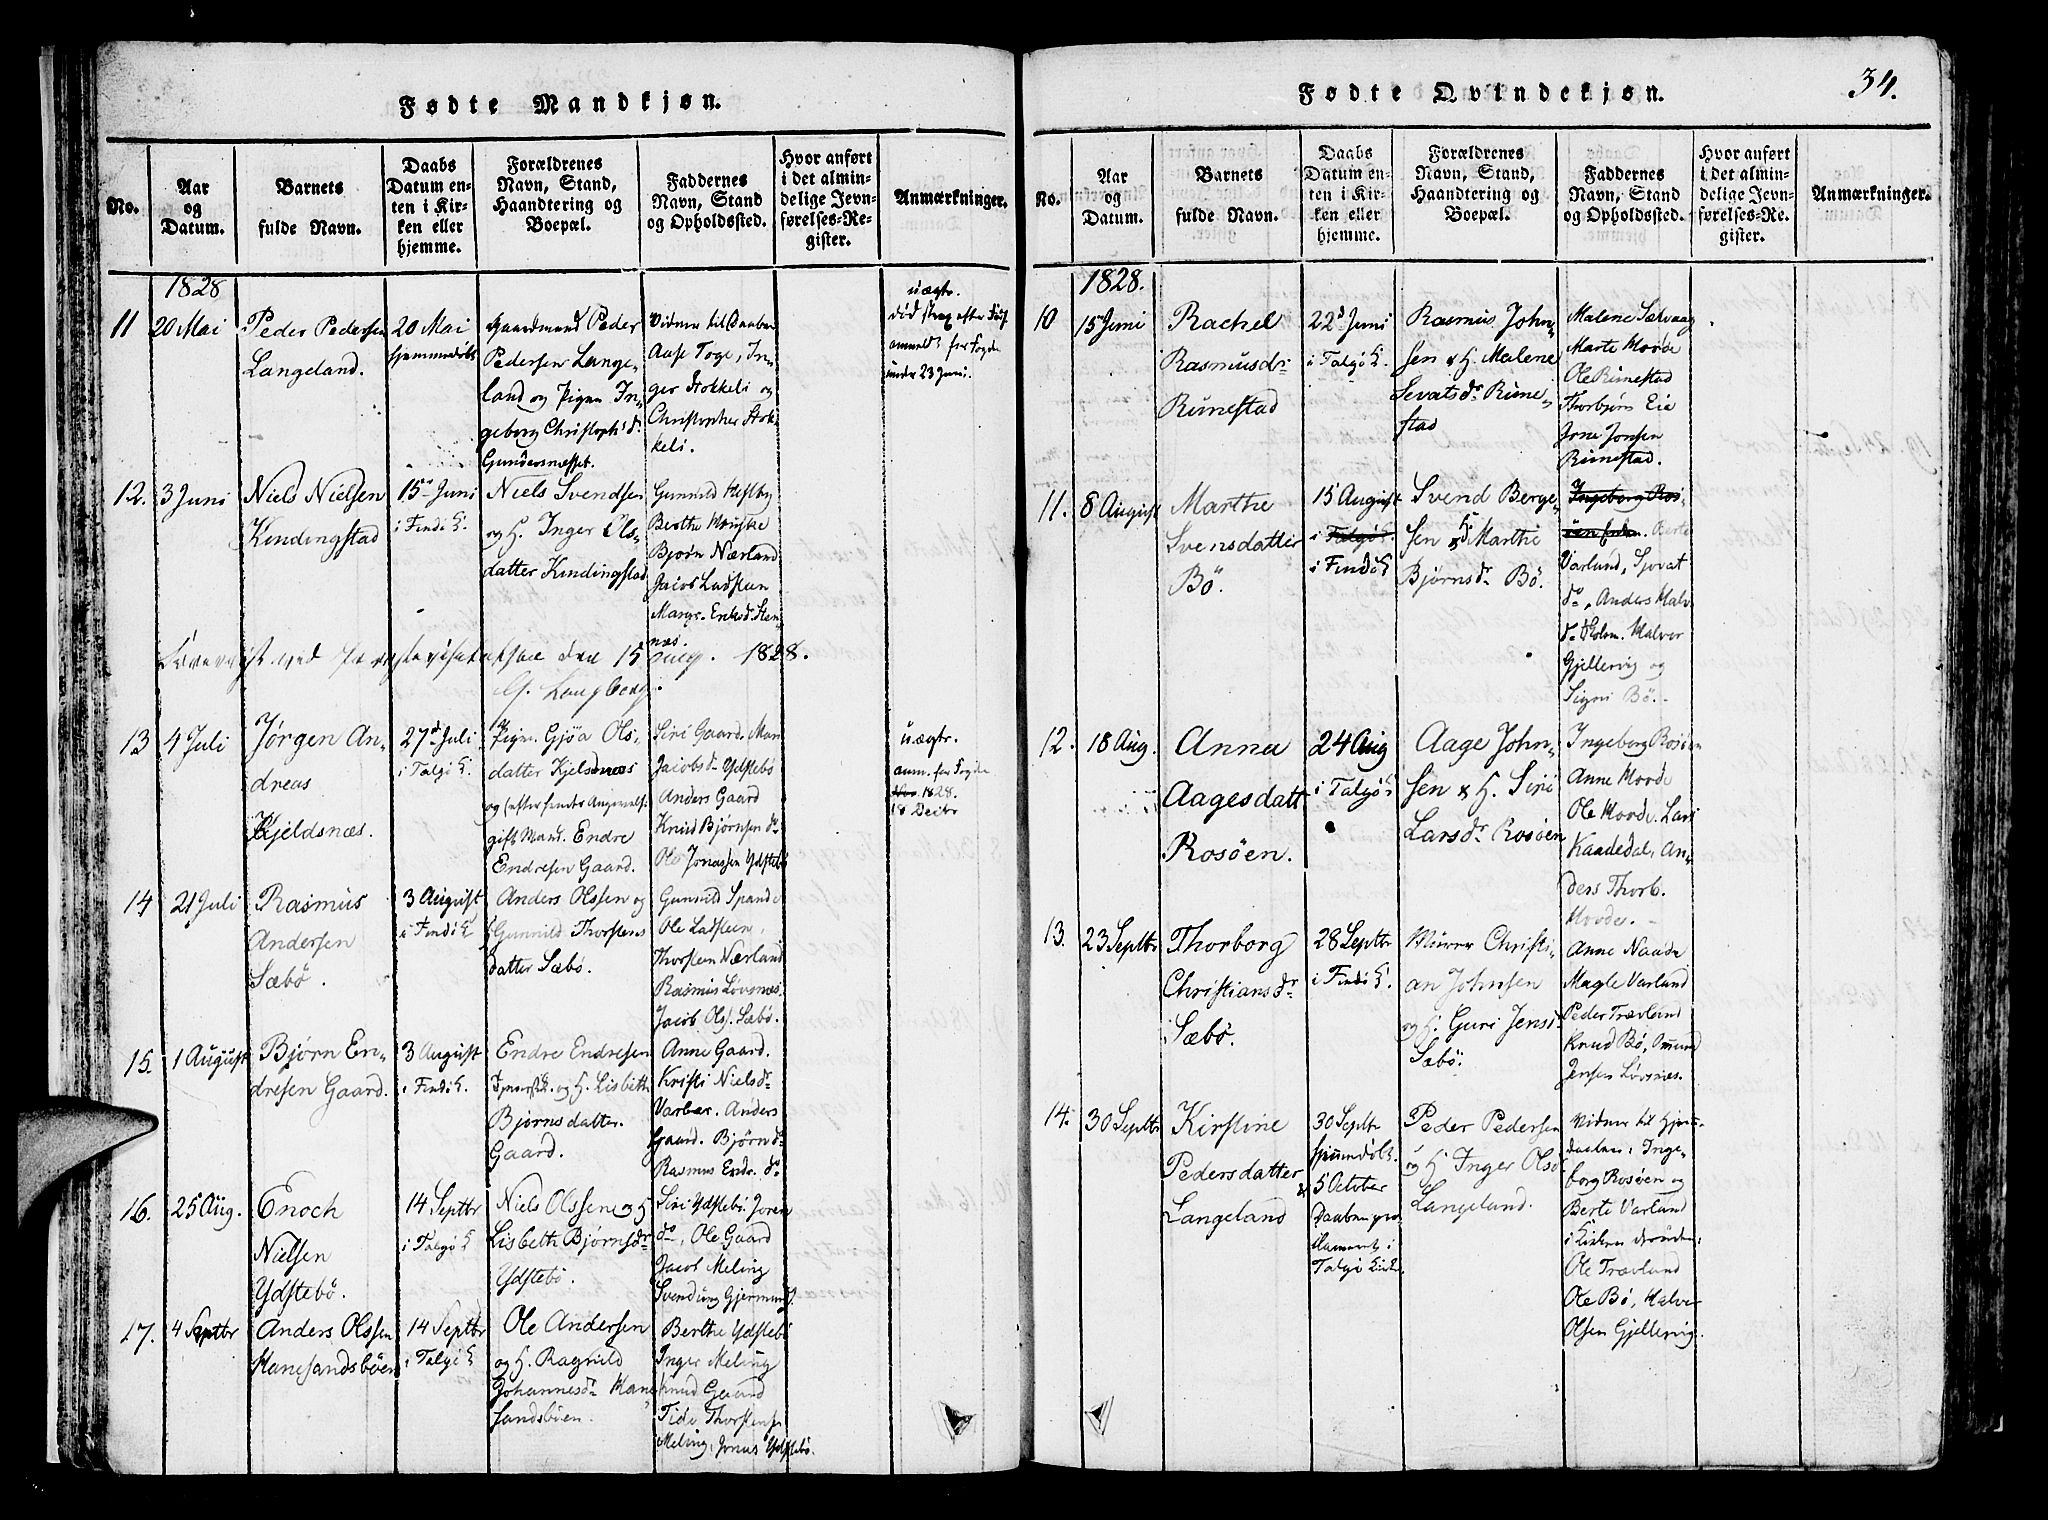 Fødte Mandkjøn.
No.
Aar
og
Datum.
Barnets
fulde Navn.
Daabs
Datum en-
ten i Kir-
ken eller
hjemme.
Forældrenes
Navn, Stand,
Haandtering og
Boepæl.
Faddernes
Navn, Stand
og Opholdssted.
Hvor anført
i det almin-
delige Jevn-
førelses-Re-
gister.
Anmærkninger.
1828
11
20 Mai
Peder Pedersen
Langeland.
20 Mai
hjemmedøbt
Gaardmand Peder
Pedersen Lange-
land og Pigen In-
geborg Christophsdr.
Gundersnæsset.
Vidner til Daaben
Aase Toge, In-
ger Stokkeli og
Christopher Stok-
keli.
uægte.
død strax efter
anmeldt for Fogden
under 23 Juni.
12.
3 Juni
Niels Nielsen
Kindingstad
15de Juni
i Findö K.
Niels Svendsen
og H. Inger Ols-
datter Kindingstad
Gunnild Hestby
Berthe
Bjørn Nærland
Jacob Ladsteen
Margr. Eriksdr. Sten-
næs.
den 15 Aug. 1828.
G. Langberg.
13
4 Juli
Jørgen An-
dreas
Kjeldsnæs.
27d Juli
i Talgö K.
Pigen Gjøa Ols-
datter Kjelsdnæs
og (efter hendes Angivelse)
gift Mand. Endre
Endresen Gaard.
Siri Gaard. Mari
Jacobsdr Ydstebö
Anders Gaard
Knud Bjørnsen do
Ole Jonassen Ydstebö
uægte.
anm. for Fogden
Nov. 1828.
18 Decbr
14
21 Juli
Rasmus
Andersen
Sæbö.
3 August
i Findö K
Anders Olssen og
H Gunnild Thorstens
datter Sæbö.
Gunnild Spande
Ole Ladsteen,
Thorsteen Nærland
Rasmus Lövsnæs.
Jacob Olss. Sæbö.
15.
1 August
Bjørn En-
dresen Gaard.
3 August
i Findö K.
Endre Endresen
og H. Lisbeth
Bjørnsdatter.
Gaard.
Anne Gaard.
Kristi Nielsdr
Varbar. Anders
Gaard. Bjørn do
Rasmus Endr. do
16.
25 Aug.
Enoch
Nielsen
Ydstebö.
14 Septbr
i Talgö K
Niels Olssen og H
Lisbeth Bjørnsdr
Ydstebö.
Siri Ydstebö. Joren
do, Ole Gaard
Jacob Meling
Svenung Gjermunds.
17.
4 Septbr
Anders Olssen
Hanesandsböen
14 Septbr
i Talgö K
Ole Andersen
og H. Ragnild
Johannesdr Hane
sandsböen.
Berthe Ydstebö
Inger Meling
Knud Gaard
Tide Thorstensen
Meling, Jonas Ydstebö.
Fødte Qvindekjøn.
34.
No.
Aar
og
Datum.
Barnets
fulde Navn.
Daabs
Datum en-
ten i Kir-
ken eller
hjemme.
Forældrenes
Navn, Stand,
Haandtering og
Boepæl.
Faddernes
Navn, Stand
og Opholdssted.
Hvor anført
i det almin-
delige Jevn-
førelses-Re-
gister.
Anmærkninger.
1828.
10
15 Juni
Rachel
Rasmusdr
Rimestad
22d Juni
i Talgö K.
Rasmus John-
sen & H. Malene
Sevatsdr Rime-
stad
Malene Sævaag
Marte Hovde
Ole Rimestad
Thorbjørn Eie
Jone Jonsen
Rimestad.
11.
8 August
Marthe
Svensdatter
Bö.
15 August
i Talgö K.
i Findö K
Svend Berge-
sen & H Marthe
Bjørnsdr Bö.
Ingeborg Ros-
öen Berte
Varlund, Sjovat
do, Anders Halv
do Holm. Halvor
Gjellervig og
Signi Bö.
12.
18 Aug.
Anna
Aagesdatt
Rosöen.
24 Aug
i Talgö K
Aage John-
sen & H. Siri
Larsdr Rosöen
Ingeborg Rosöen
Anne Hovde
Ole Hovde. Lars
Kaadedal, An-
ders Thorb.
Hovde.
13.
23 Septbr
Thorborg
Christiansdr
Sæbö.
28 Septbr
i Findö K.
Christi-
an Johnsen
og H. Guri Jensdr
Sæbö.
Anne Naade
Magle Varland
Peder Trævland
Knud Bö, Omund
Jensen Lövsnæs.
14.
30 Septbr
Kirstine
Pedersdatter
Langeland
30 Septbr
hjemmedöbt.
5 October
Daaben pro
i
Talgö Kirke.
Peder Pedersen
og H Inger Olsdr
Langeland.
Vidner til Hjemme
daaben: Inge-
borg Rosöen og
Berte Varland
i Kirken
Ole Trævland
Ole Bö, Halvor
Olsen Gjellervig.